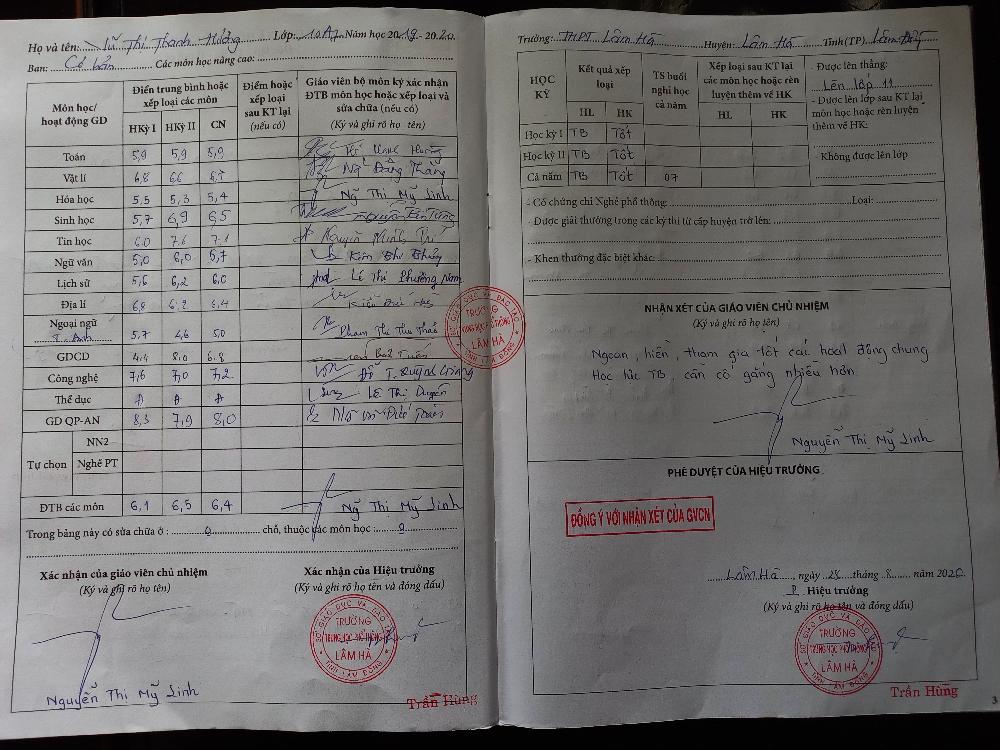 Họ và tên: Vũ Thị Thanh Hương Lớp: 10A1 Năm học 2019 - 2020
Ban: Cơ bản Các môn học nâng cao:
Môn học/ hoạt động GD
Điểm trung bình hoặc xếp loại các môn
HKỳ I HKỳ II CN
Điểm hoặc xếp loại sau KT lại (nếu có)
Giáo viên bộ môn ký xác nhận ĐTB môn học hoặc xếp loại và sửa chữa (nếu có)
(Ký và ghi rõ họ tên)
Toán 5,9 5,9 5,9
Vật lí 6,8 6,6
Hóa học 5,5 5,3 5,4 Ng Thị Mỹ Linh
Sinh học 5,7 6,9 6,5
Tin học 6,0 7,6 7,1 Nguyễn Minh
Ngữ văn 5,0 6,0 5,7 Kim
Lịch sử 5,6 6,2 6,0 Lê Thị Phương Nam
Địa lí 6,8 6,2 6,4
Ngoại ngữ
T. Anh 5,7 4,6 5,0 Phạm Thị Thu Thảo
GDCD 4,4 8,0 6,8
Công nghệ 7,6 7,0 7,2 Đỗ T. Quỳnh
Thể dục Đ Đ Đ Lê Thị Duyên
GD QP-AN 8,3 7,9 8,0
Tự chọn
NN2
Nghề PT
ĐTB các môn 6,1 6,5 6,4 Ng Thị Mỹ Linh
Trong bảng này có sửa chữa ở : 0 chỗ, thuộc các môn học : 0
Xác nhận của giáo viên chủ nhiệm
(Ký và ghi rõ họ tên)
Nguyễn Thị Mỹ Linh
Xác nhận của Hiệu trưởng
(Ký và ghi rõ họ tên và đóng dấu)
SỞ GIÁO DỤC VÀ ĐÀO TẠO
TRƯỜNG
TRUNG HỌC PHỔ THÔNG
LÂM HÀ
TỈNH LÂM ĐỒNG
Trần Hùng
SỞ GIÁO DỤC VÀ ĐÀO TẠO
TRƯỜNG
TRUNG HỌC PHỔ THÔNG
LÂM HÀ
TỈNH LÂM ĐỒNG
Trường: THPT Lâm Hà Huyện: Lâm Hà Tỉnh (TP) Lâm Đồng
HỌC KỲ
Kết quả xếp loại
HL HK
TS buổi nghỉ học cả năm
Xếp loại sau KT lại các môn học hoặc rèn luyện thêm về HK
HL HK
Học kỳ I TB Tốt
Học kỳ II TB Tốt
Cả năm TB Tốt 07
- Được lên thẳng:
Lên lớp 11
- Được lên lớp sau KT lại
môn học hoặc rèn luyện
thêm về HK:
- Không được lên lớp
- Có chứng chỉ Nghề phổ thông: Loại:
- Được giải thưởng trong các kỳ thi từ cấp huyện trở lên:
- Khen thưởng đặc biệt khác:
NHẬN XÉT CỦA GIÁO VIÊN CHỦ NHIỆM
(Ký và ghi rõ họ tên)
Ngoan, hiền, tham gia tốt các hoạt động chung
Học lực TB, cần cố gắng nhiều hơn
Nguyễn Thị Mỹ Linh
PHÊ DUYỆT CỦA HIỆU TRƯỞNG
ĐỒNG Ý VỚI NHẬN XÉT CỦA GVCN
Lâm Hà, ngày 25 tháng 8 năm 2020
P. Hiệu trưởng
(Ký và ghi rõ họ tên và đóng dấu)
SỞ GIÁO DỤC VÀ ĐÀO TẠO
TRƯỜNG
TRUNG HỌC PHỔ THÔNG
LÂM HÀ
TỈNH LÂM ĐỒNG
Trần Hùng
3